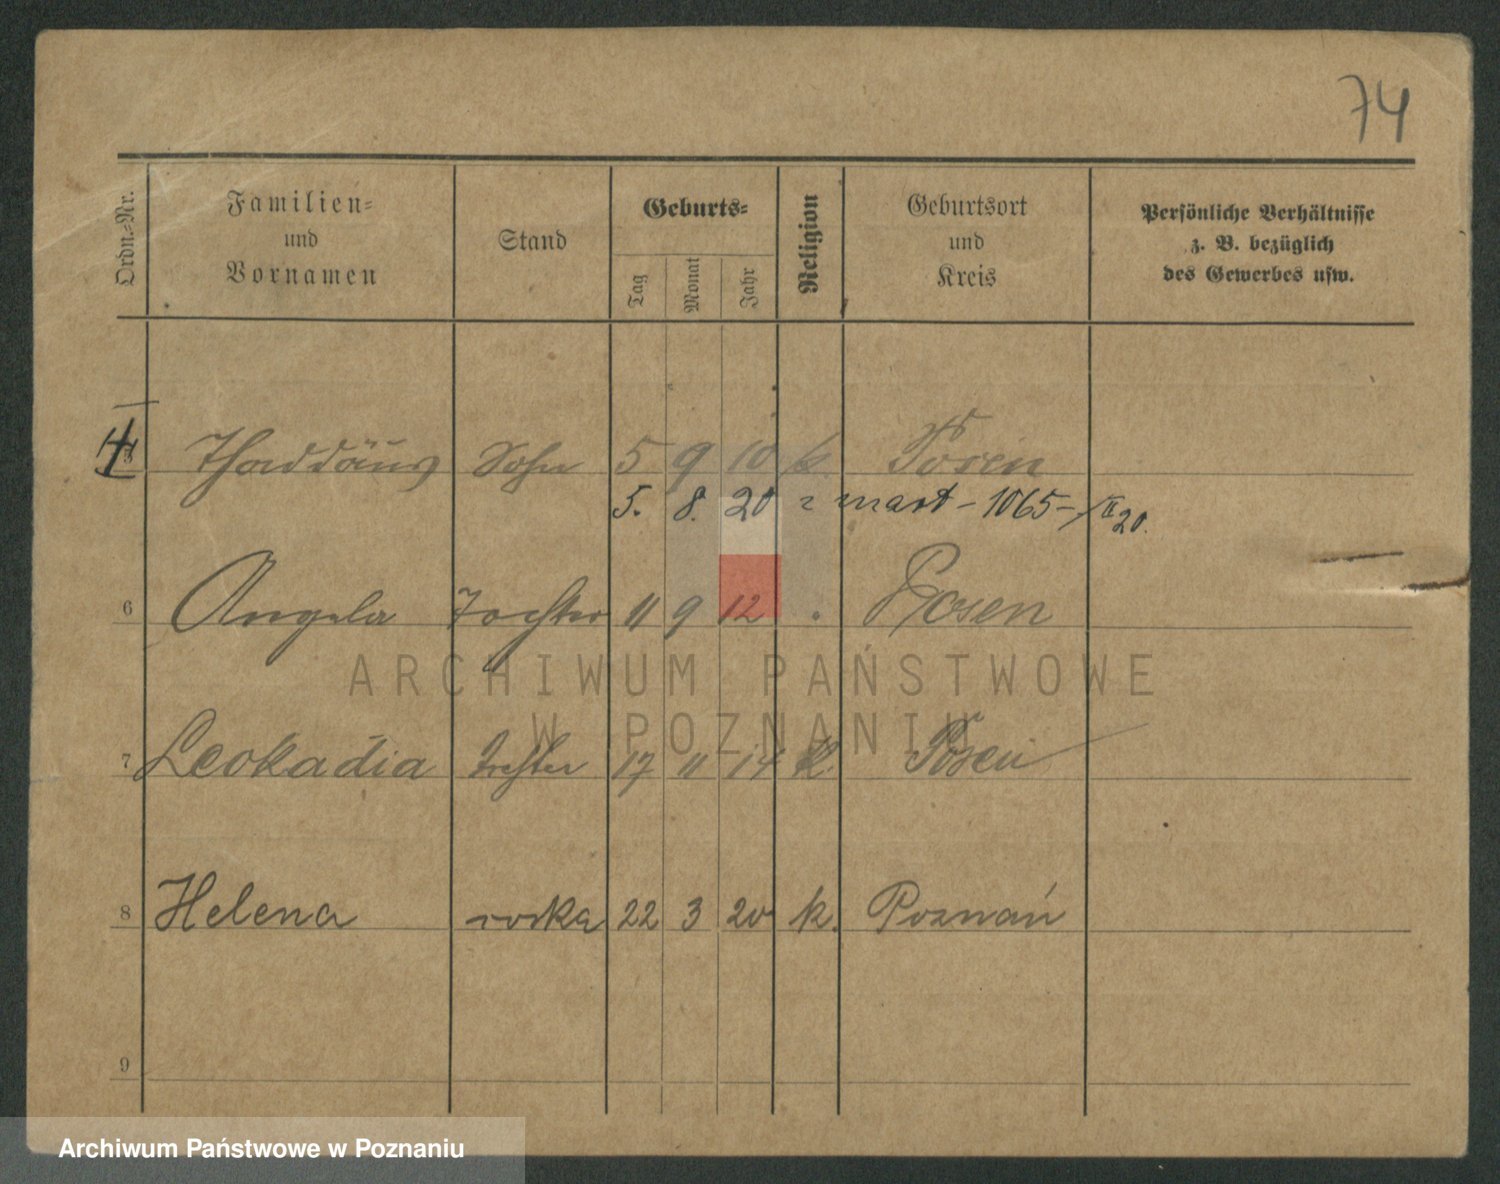 74
Ordn.-Nr. Familien- und Vornamen Stand Geburts- Tag Monat Jahr Religion Geburtsort und Kreis Persönliche Verhältnisse z. B. bezüglich des Gewerbes usw.
Thaddäus Sohn 5 9 10 k Posen
5. 8. 20 zmart - 1065 - / II 20.
6 Angela Tochter 11 9 12 Posen
ARCHIWUM PAŃSTWOWE
W POZNANIU
7 Leokadia Tochter 17 11 14 k. Posen
8 Helena córka 22 3 20 k. Poznań
9
Archiwum Państwowe w Poznaniu